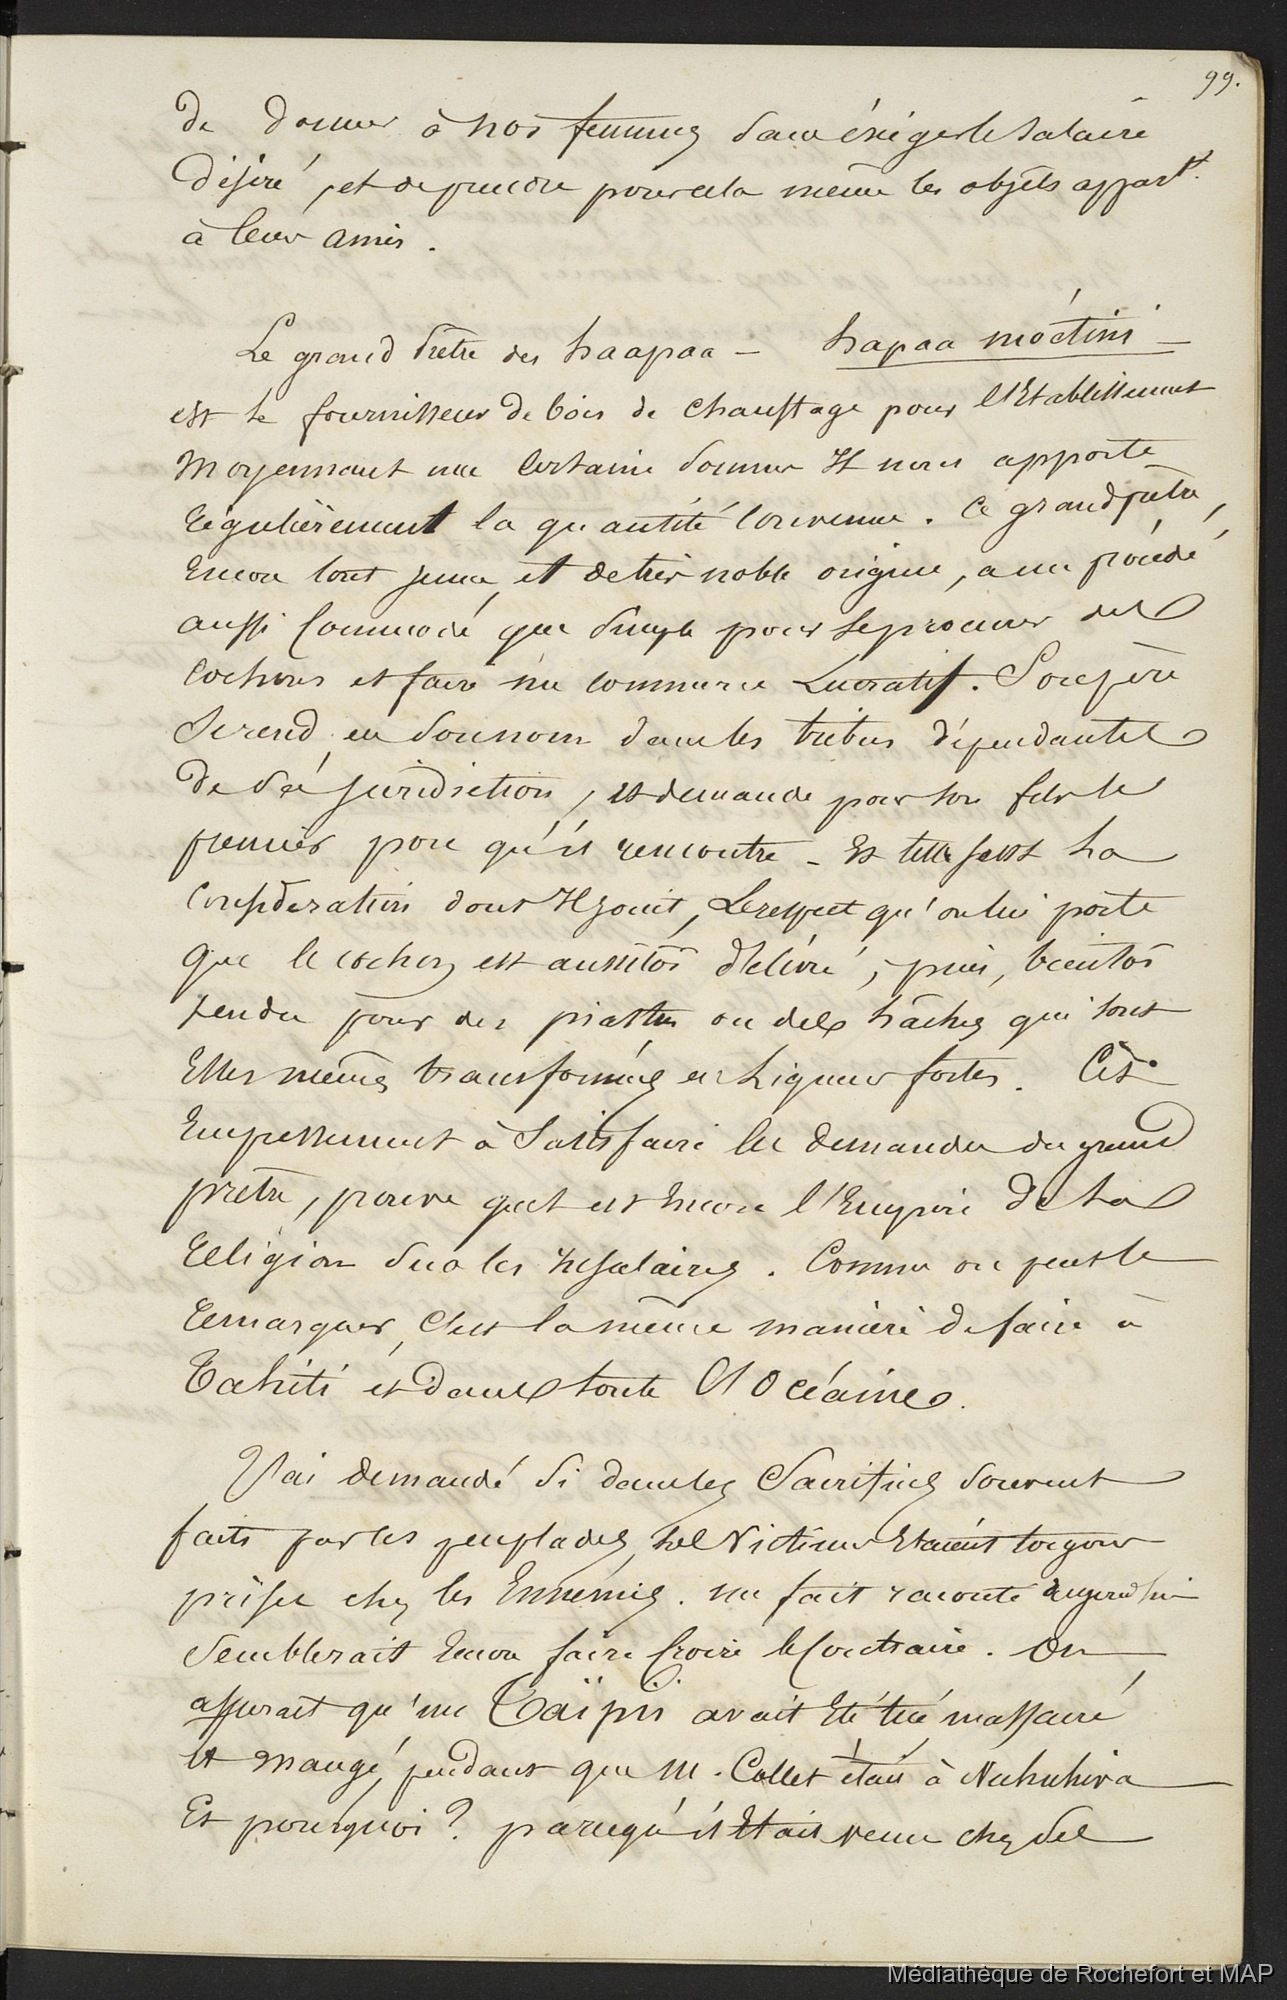 99.
de donner à nos femmes sans éxiger le salaire
désiré, et de prendre pour cela même les objets appart.
à leur amis.
Le grand Prêtre des haapaa - hapaa moétini -
est le fournisseur de bois de chauffage pour l'Etablissement
moyennant une certaine somme Il nous apporte
régulièrement la quantité convenue. Ce grand prêtre,
Encore tout jeune, et de très noble origine, a un procédé
aussi commode que simple pour se procurer des
cochons et faire un commerce Lucratif. Son père
se rend en son nom dans les tribus dépendantes
de sa juridiction, et demande pour son fils le
premier porc qu'il rencontre - Et telle est la
considération dont Il jouit, Le respect qu'on lui porte
que le cochon est aussitôt délivré, puis, bientôt
vendu pour des piastres ou des hâches qui sont
Elles mêmes transformées en Liqueurs fortes. Cet
Empressement à Satisfaire les demandes du grand
prêtre, prouve quel est Encore l'Empire de la
Religion sur les insulaires. Comme on peut le
remarquer, C'est la même manière de faire à
Tahiti et dans toute l'Océanie.
J'ai demandé si dans les Sacrifices souvent
faits par les peuplades, les Victimes Etaient toujours
prises chez les Ennemis. un fait raconté aujourd'hui
semblerait Encore faire croire le Contraire. On
assurait qu'un Taïpis avait Eté tué massacré
et mangé, pendant que M. Collet était à Nukuhiva
Et pourquoi? parcequ'il Etait venu chez des
Médiathèque de Rochefort et MAP